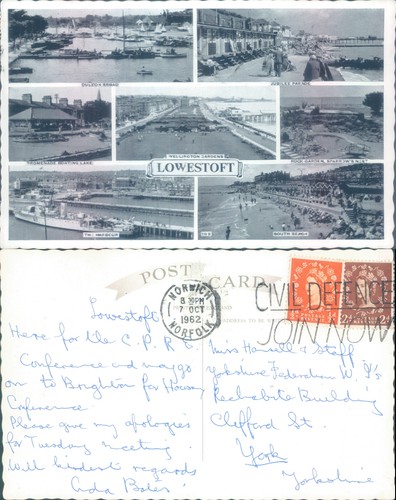 OULTON BROAD
JUBILEE PARADE
WELLINGTON GARDENS
PROMENADE BOATING LAKE
LOWESTOFT
THE HARBOUR
SOUTH BEACH
POST CARD
NORWICH
8 30PM
7 OCT
1962
NORFOLK
CIVIL DEFENCE
JOIN NOW
Lowestoft
Here for the C.P.R.
Conference and may go
on to Brighton for Housing
Conference.
Please give my apologies
for Tuesday meeting.
With kindest regards
Miss & Staff
Yorkshire Federation W. I's
Rechabite Building
Clifford St.
York
Yorkshire